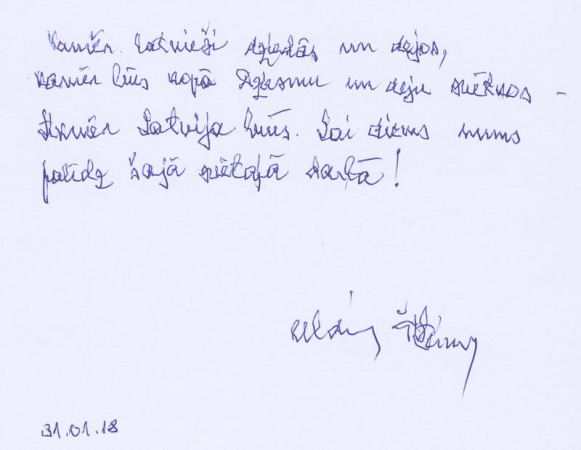 Kamēr latvieši dziedās un dejos,
kamēr būs kopā Dziesmu un deju svētkos –
tikmēr Latvija būs. Lai dievs mums
palīdz šajā svētajā darbā!
31.01.18